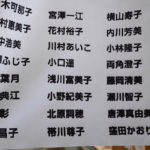 宮澤一江 横山寿子
村恵美子 花村裕子 内川芳子
中浩美 川村あいこ 小林隆子
ふじ子 小口遥 両角澄子
葉月 浅川富恵子 藤岡満美
典江 小野紀美子 瀬川智子
彰 北原 唐澤真由美
昌子 帯川尊子 窪田かおり